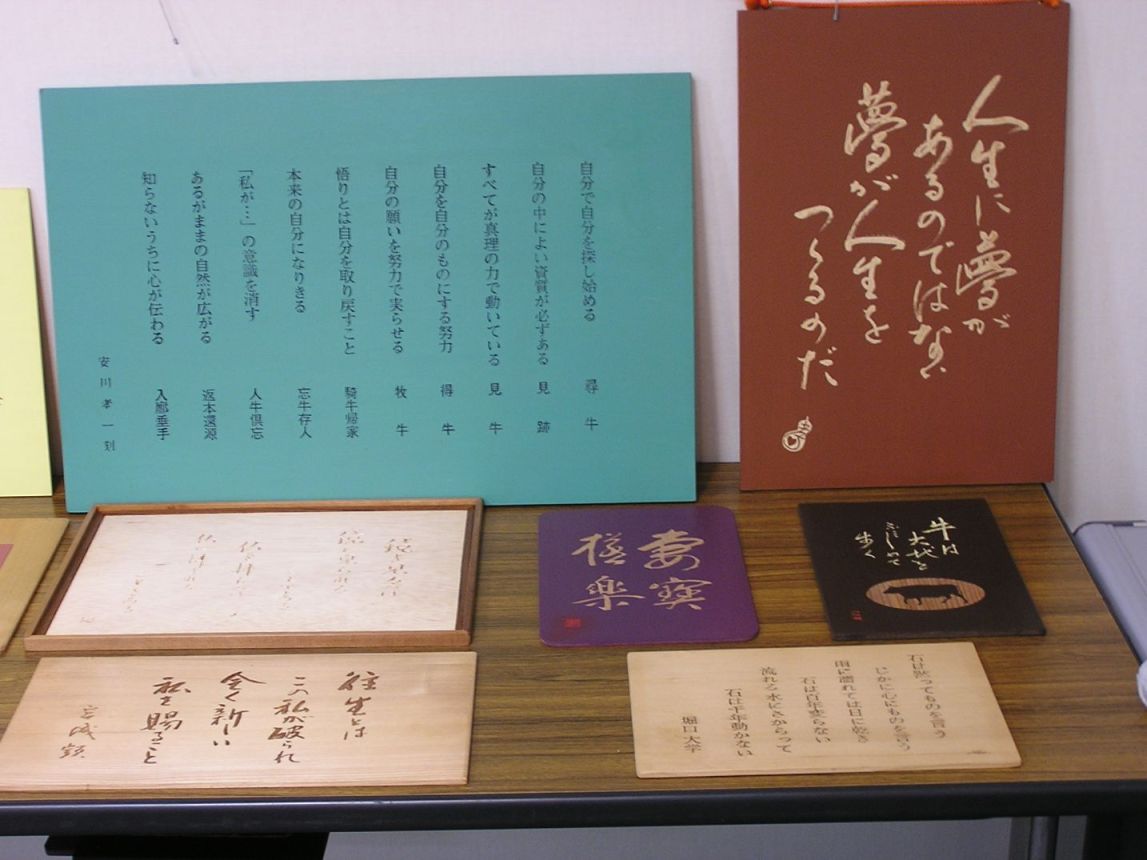 自分で自分を探し始める 尋牛
自分の中によい資質が必ずある 見跡
すべてが真理の力で動いている 見牛
自分を自分のものにする努力 得牛
自分の願いを努力で実らせる 牧牛
悟りとは自分を取り戻すこと 騎牛帰家
本来の自分になりきる 忘牛存人
「私が…」の意識を消す 人牛倶忘
あるがままの自然が広がる 返本還源
知らないうちに心が伝わる 入鄽垂手
安川孝一刻
人生に夢が
あるのではない
夢が人生を
つくるのだ
妻寳
極楽
牛は
大地を
歩く
往生とは
この私が破られ
全く新しい
私を賜ること
宮城顗
石は黙ってものを言う
じかに心にものを言う
雨に濡れては日に乾き
石は百年変らない
流れる水にさからって
石は千年動かない
堀口大学